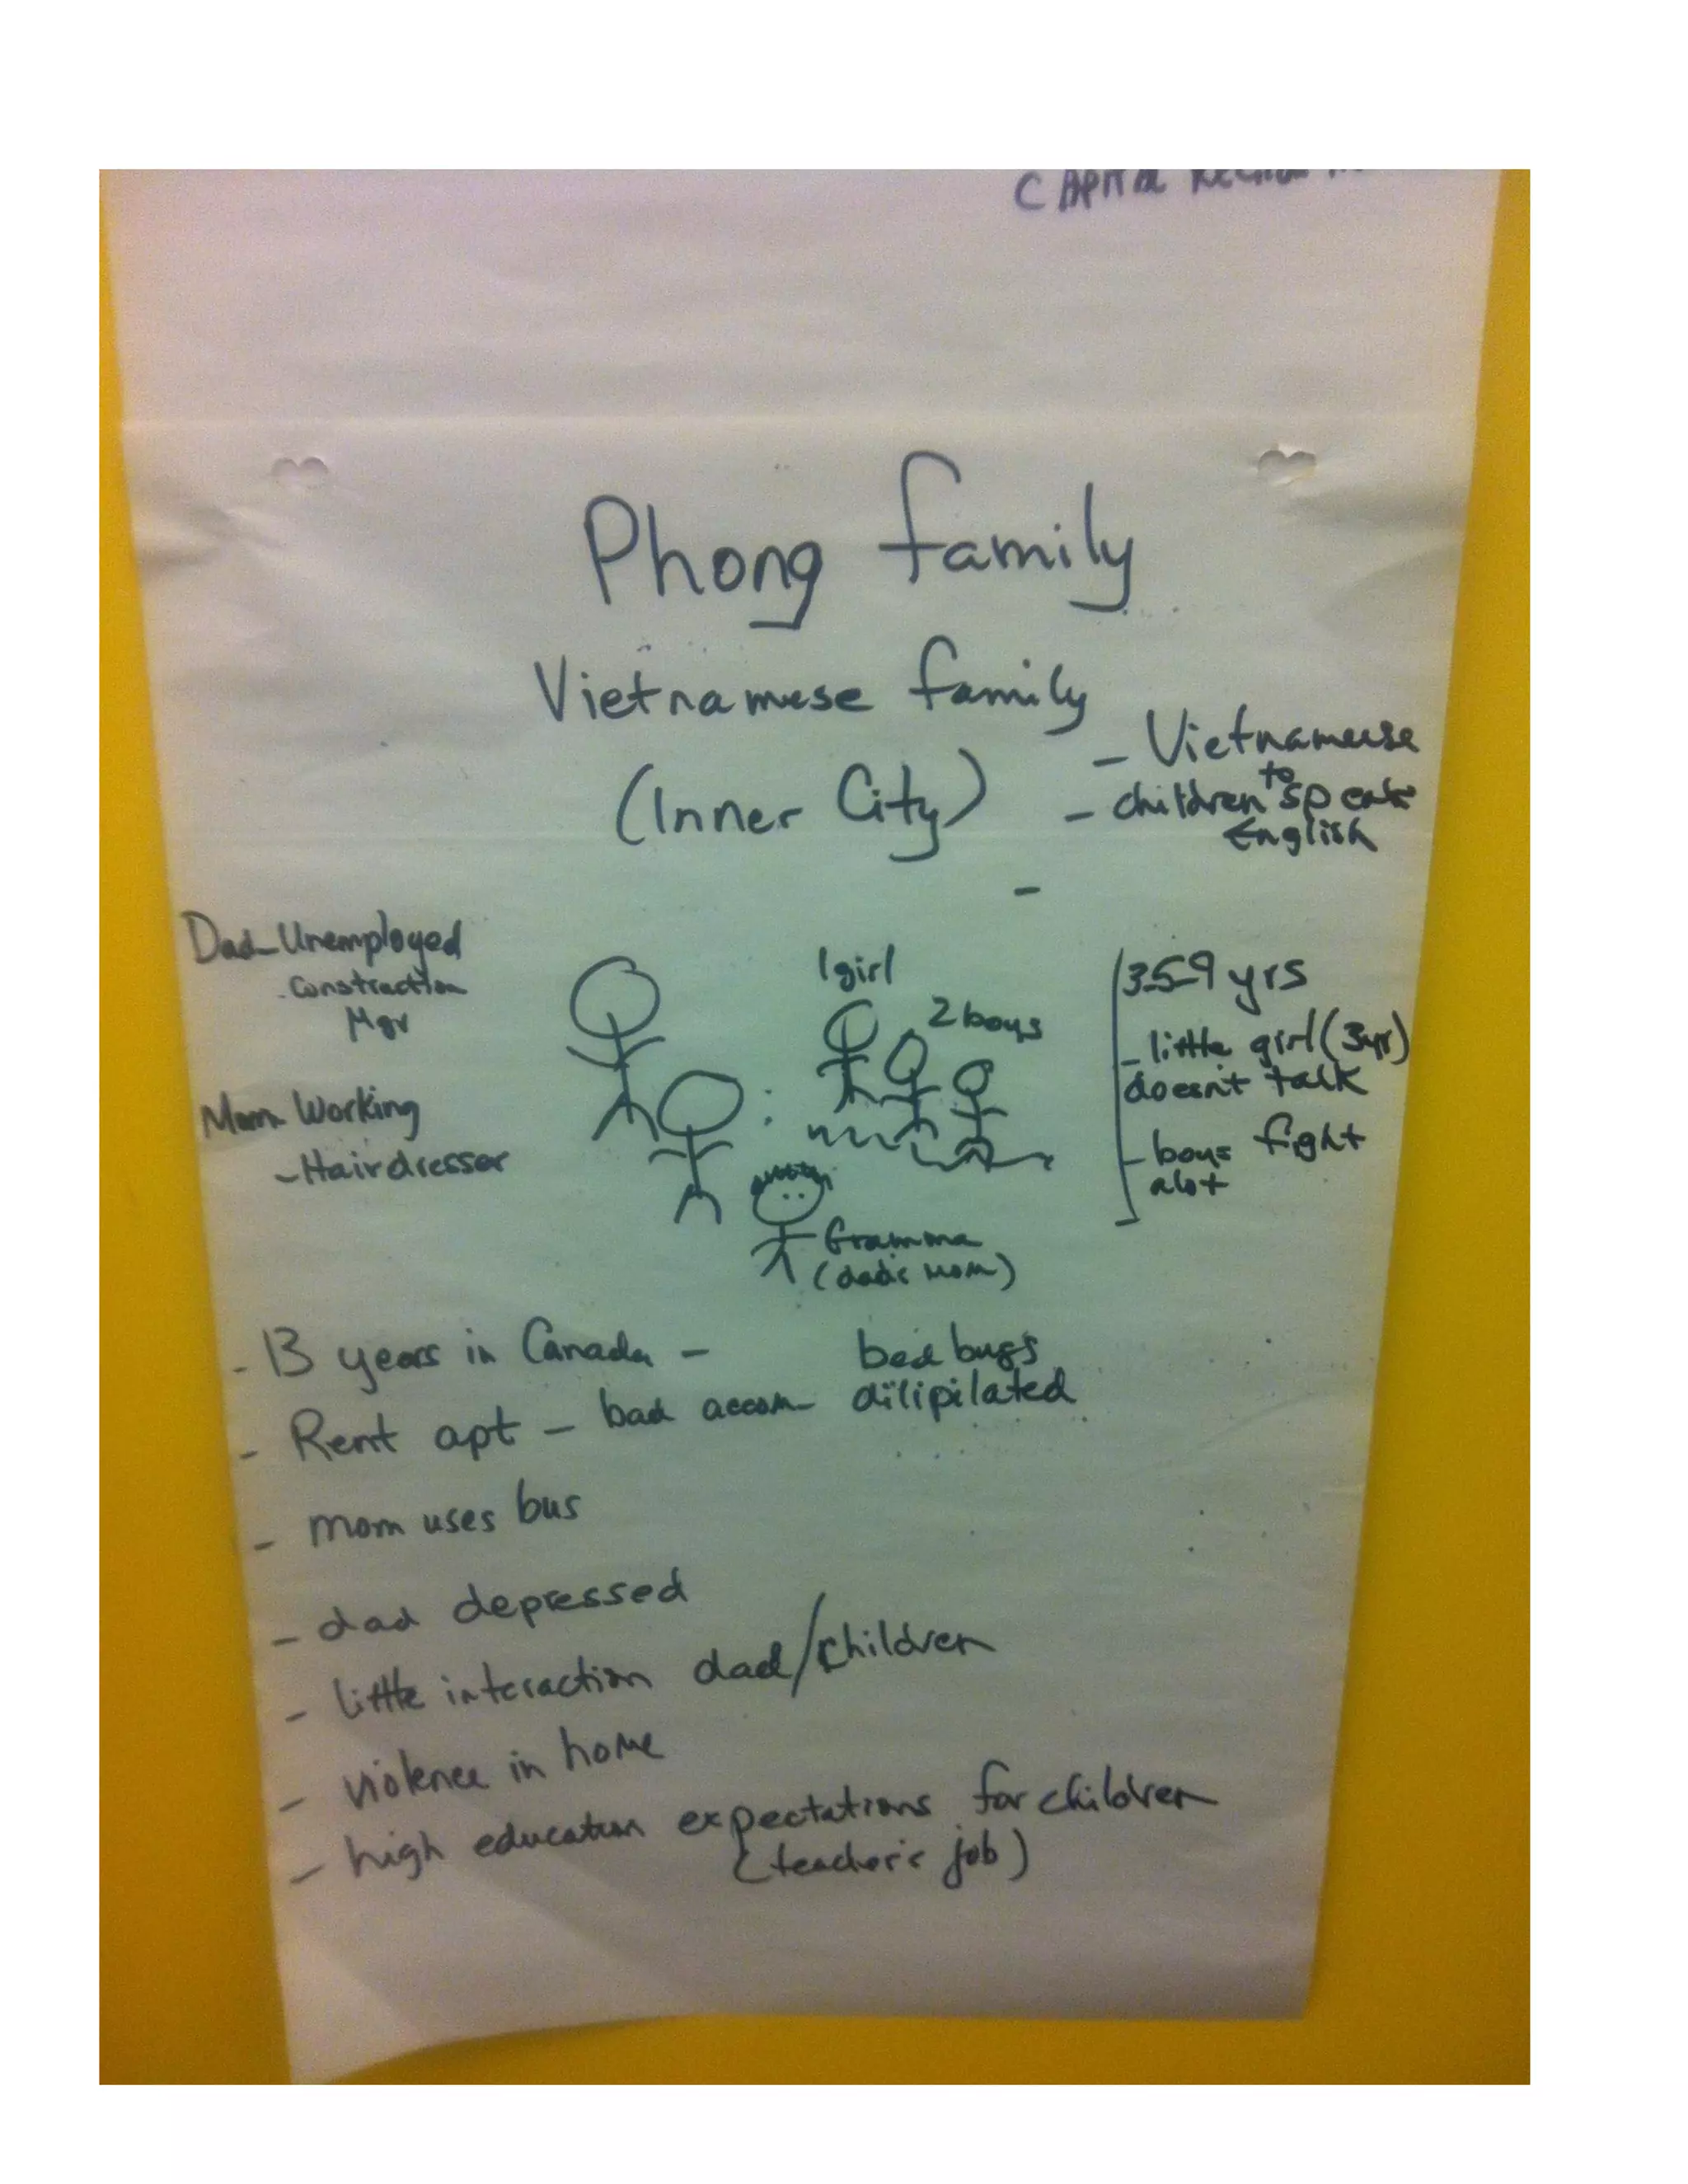 CAPITAL
Phong family
Vietnamese family
(Inner City)
- Vietnameese
- children to speak
English
-
Dad - Unemployed
- Construction
Mgr
Mom Working
- Hairdresser
1 girl
2 boys
Gramma
(dad's mom)
3-5-9 yrs
- little girl (3yr)
doesn't talk
- boys fight
alot
- 13 years in Canada -
bed bugs
- Rent apt - bad accom - dilipilated
- mom uses bus
- dad depressed
- little interaction dad/children
- violence in home
- high education expectations for children
(teacher's job)